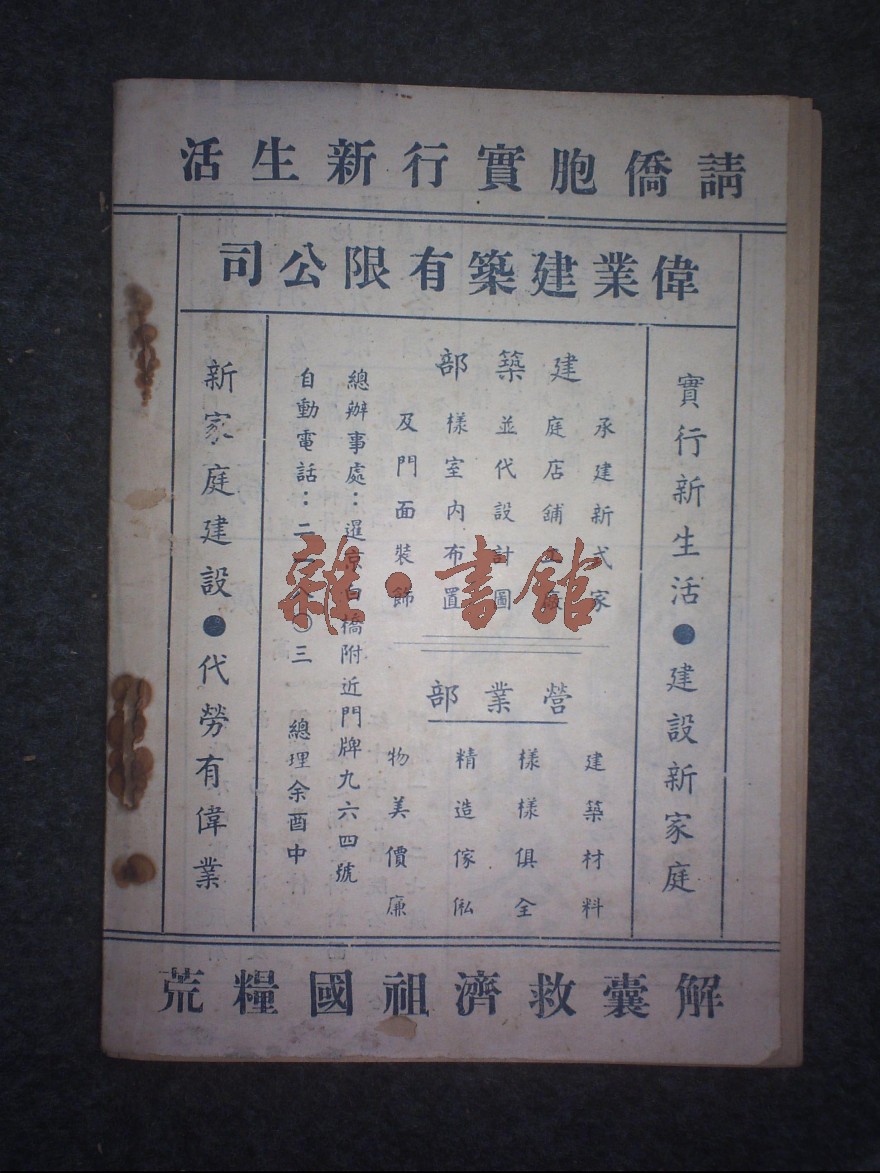 請僑胞實行新生活
偉業建築有限公司
實行新生活●建設新家庭
建築部
承建新式家
庭店舖
並代設計圖
樣室內布置
及門面裝飾
營業部
建築材料
樣樣俱全
精造傢俬
物美價廉
總辦事處：暹京白橋附近門牌九六四號
自動電話：二 三
總理余酉中
新家庭建設●代勞有偉業
解囊救濟祖國糧荒
雜·書館